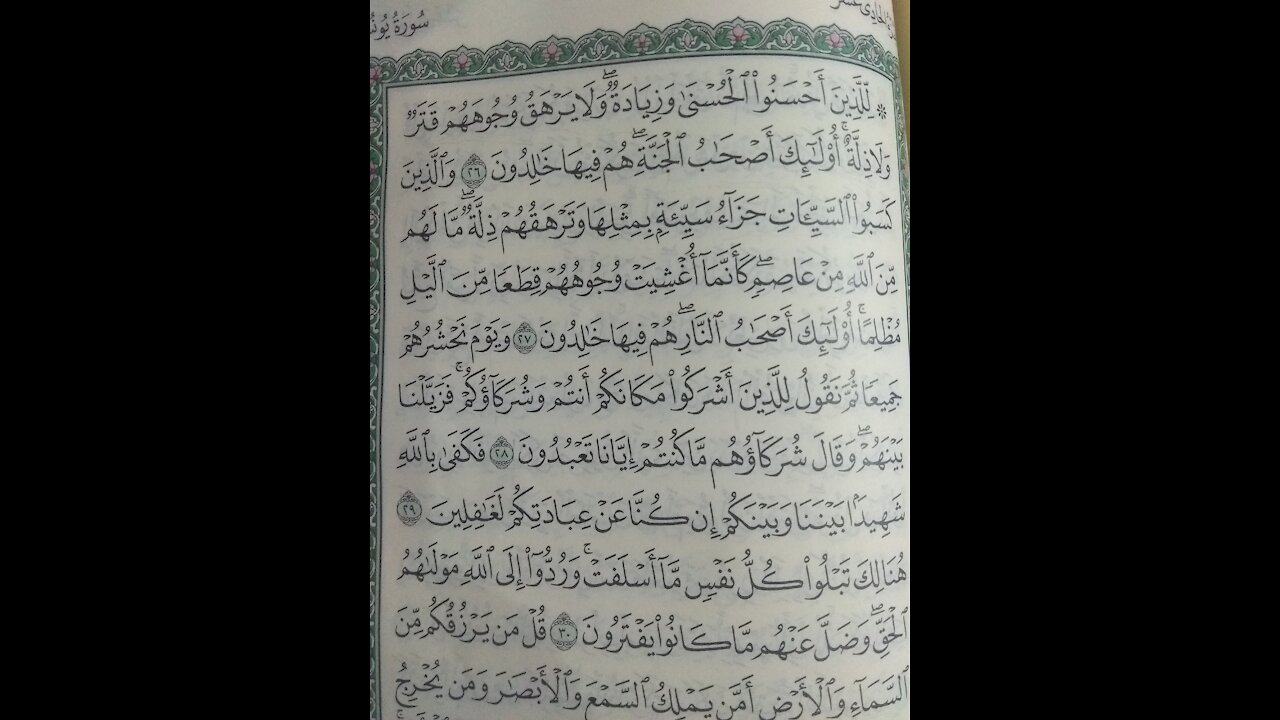 سُورَةُ يُونُسَ
۞ لِّلَّذِينَ أَحۡسَنُواْ ٱلۡحُسۡنَىٰ وَزِيَادَةٞۖ وَلَا يَرۡهَقُ وُجُوهَهُمۡ قَتَرٞ
وَلَا ذِلَّةٌۚ أُوْلَٰٓئِكَ أَصۡحَٰبُ ٱلۡجَنَّةِۖ هُمۡ فِيهَا خَٰلِدُونَ ٢٦ وَٱلَّذِينَ
كَسَبُواْ ٱلسَّيِّـَٔاتِ جَزَآءُ سَيِّئَةِۭ بِمِثۡلِهَا وَتَرۡهَقُهُمۡ ذِلَّةٞۖ مَّا لَهُم
مِّنَ ٱللَّهِ مِنۡ عَاصِمٖۖ كَأَنَّمَآ أُغۡشِيَتۡ وُجُوهُهُمۡ قِطَعٗا مِّنَ ٱلَّيۡلِ
مُظۡلِمًاۚ أُوْلَٰٓئِكَ أَصۡحَٰبُ ٱلنَّارِۖ هُمۡ فِيهَا خَٰلِدُونَ ٢٧ وَيَوۡمَ نَحۡشُرُهُمۡ
جَمِيعٗا ثُمَّ نَقُولُ لِلَّذِينَ أَشۡرَكُواْ مَكَانَكُمۡ أَنتُمۡ وَشُرَكَآؤُكُمۡۚ فَزَيَّلۡنَا
بَيۡنَهُمۡۖ وَقَالَ شُرَكَآؤُهُم مَّا كُنتُمۡ إِيَّانَا تَعۡبُدُونَ ٢٨ فَكَفَىٰ بِٱللَّهِ
شَهِيدَۢا بَيۡنَنَا وَبَيۡنَكُمۡ إِن كُنَّا عَنۡ عِبَادَتِكُمۡ لَغَٰفِلِينَ ٢٩
هُنَالِكَ تَبۡلُواْ كُلُّ نَفۡسٖ مَّآ أَسۡلَفَتۡۚ وَرُدُّوٓاْ إِلَى ٱللَّهِ مَوۡلَىٰهُمُ
ٱلۡحَقِّۖ وَضَلَّ عَنۡهُم مَّا كَانُواْ يَفۡتَرُونَ ٣٠ قُلۡ مَن يَرۡزُقُكُم مِّنَ
ٱلسَّمَآءِ وَٱلۡأَرۡضِ أَمَّن يَمۡلِكُ ٱلسَّمۡعَ وَٱلۡأَبۡصَٰرَ وَمَن يُخۡرِجُ